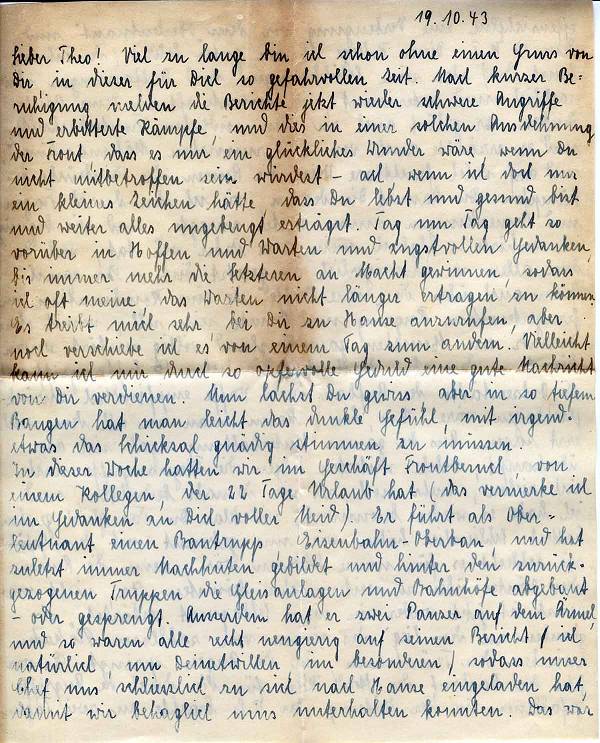 19.10.43
Lieber Theo! Viel zu lange bin ich schon ohne einen Gruss von
Dir, in dieser für Dich so gefahrvollen Zeit. Nach kurzer Be-
ruhigung melden die Berichte jetzt wieder schwere Angriffe
und erbitterte Kämpfe, und dies in einer solchen Ausdehnung
der Front, dass es nur ein glückliches Wunder wäre, wenn Du
nicht mitbetroffen sein würdest – ach, wenn ich doch nur
ein kleines Zeichen hätte, dass Du lebst und gesund bist
und weiter alles ungebeugt erträgst. Tag um Tag geht so
vorüber in Hoffen und Warten und angstvollen Gedanken,
bis immer mehr die letzteren an Macht gewinnen, sodass
ich oft meine, das Warten nicht länger ertragen zu können.
Es treibt mich sehr, bei Dir zu Hause anzurufen, aber
noch verschiebe ich es von einem Tag zum andern. Vielleicht
kann ich mir durch so opfervolle Geduld eine gute Nachricht
von Dir verdienen. Nun lachst Du gewiss, aber in so tiefem
Bangen hat man leicht das dunkle Gefühl, mit irgend-
etwas das Schicksal gnädig stimmen zu müssen.
In dieser Woche hatten wir im Geschäft Frontbesuch, von
einem Kollegen, der 22 Tage Urlaub hat (das vermerke ich
im Gedanken an Dich voller Neid). Er führt als Ober-
leutnant einen Bautrupp, Eisenbahn-Oberbau, und hat
zuletzt immer Nachhuten gebildet und hinter den zurück-
gezogenen Truppen die Gleisanlagen und Bahnhöfe abgebaut
– oder gesprengt. Ausserdem hat er zwei Panzer auf dem Ärmel,
und so waren alle recht neugierig auf seinen Bericht (ich
natürlich um Deinetwillen im besonderen), sodass unser
Chef uns schliesslich zu sich nach Hause eingeladen hat,
damit wir behaglich uns unterhalten konnten. Das war